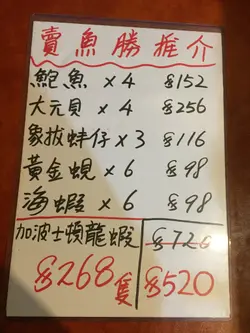 賣魚勝推介
鮑魚 x 4 $152
大元貝 x 4 $256
象拔蚌仔 x 3 $116
黃金蜆 x 6 $98
海蝦 x 6 $98
加波士頓龍蝦 $726
$268隻 $520